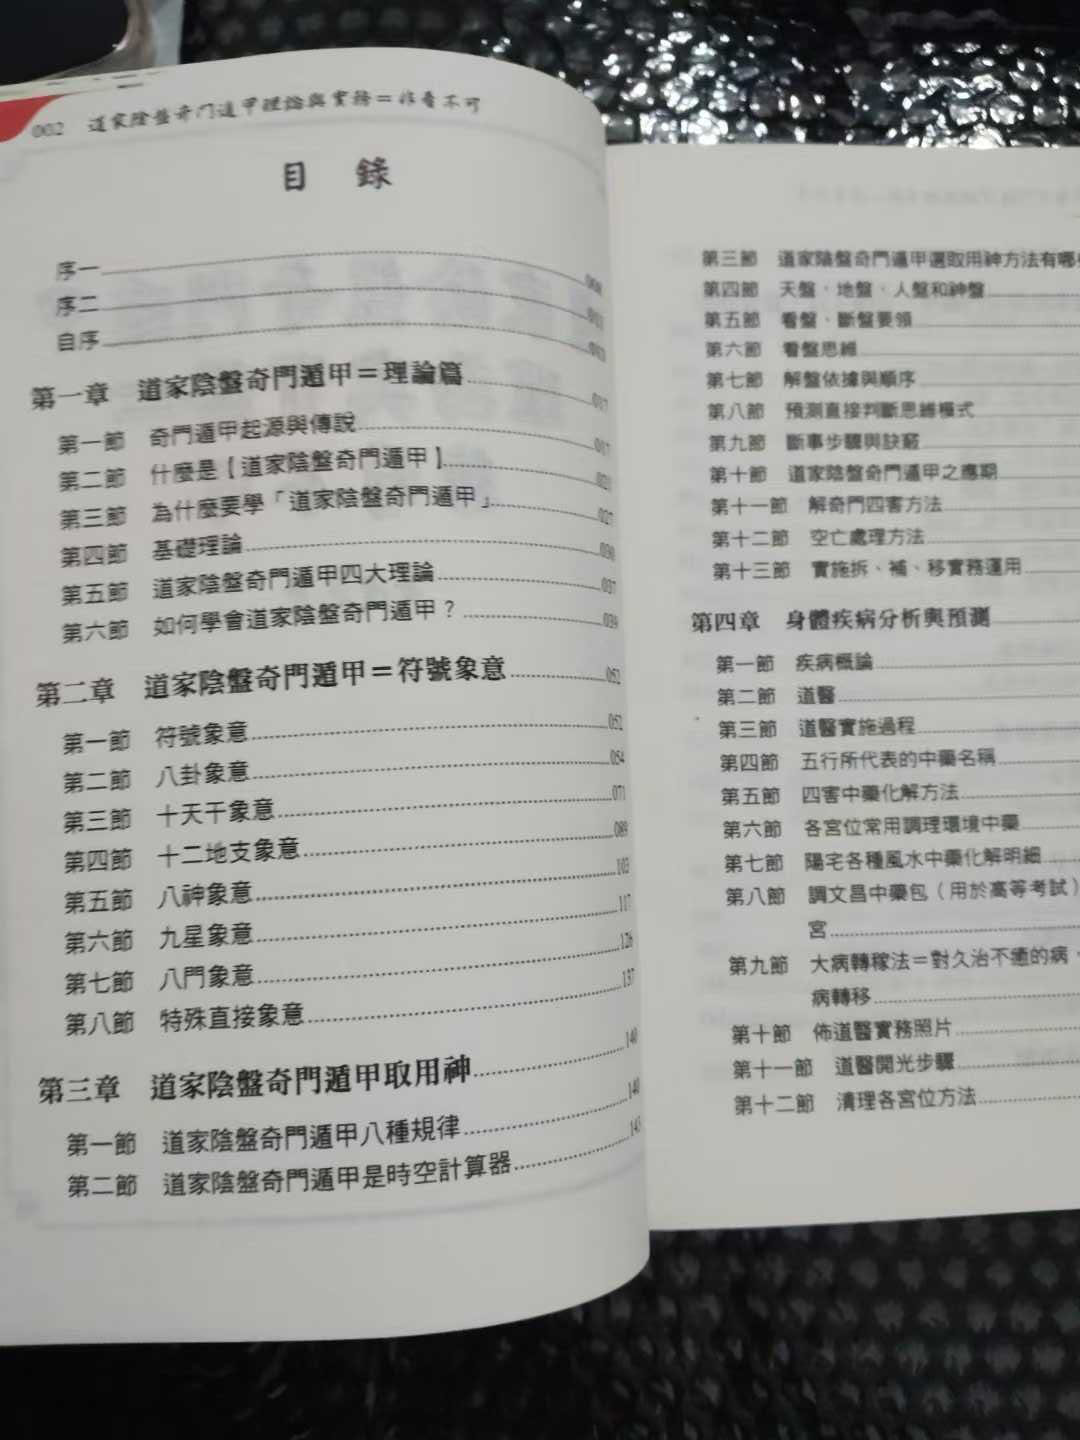 002 道家陰盤奇門遁甲理論與實務＝非看不可
目 錄
序一
序二
自序
第一章 道家陰盤奇門遁甲＝理論篇 017
第一節 奇門遁甲起源與傳說 017
第二節 什麼是【道家陰盤奇門遁甲】 023
第三節 為什麼要學「道家陰盤奇門遁甲」 027
第四節 基礎理論 030
第五節 道家陰盤奇門遁甲四大理論 037
第六節 如何學會道家陰盤奇門遁甲？ 039
第二章 道家陰盤奇門遁甲＝符號象意 052
第一節 符號象意 052
第二節 八卦象意 054
第三節 十天干象意 071
第四節 十二地支象意 089
第五節 八神象意 103
第六節 九星象意 117
第七節 八門象意 126
第八節 特殊直接象意 137
第三章 道家陰盤奇門遁甲取用神 140
第一節 道家陰盤奇門遁甲八種規律 140
第二節 道家陰盤奇門遁甲是時空計算器 143
第三節 道家陰盤奇門遁甲選取用神方法有哪
第四節 天盤、地盤、人盤和神盤
第五節 看盤、斷盤要領
第六節 看盤思維
第七節 解盤依據與順序
第八節 預測直接判斷思維模式
第九節 斷事步驟與訣竅
第十節 道家陰盤奇門遁甲之應期
第十一節 解奇門四害方法
第十二節 空亡處理方法
第十三節 實施拆、補、移實務運用
第四章 身體疾病分析與預測
第一節 疾病概論
第二節 道醫
第三節 道醫實施過程
第四節 五行所代表的中藥名稱
第五節 四害中藥化解方法
第六節 各宮位常用調理環境中藥
第七節 陽宅各種風水中藥化解明細
第八節 調文昌中藥包（用於高等考試）
宮
第九節 大病轉稼法＝對久治不癒的病，
病轉移
第十節 佈道醫實務照片
第十一節 道醫開光步驟
第十二節 清理各宮位方法